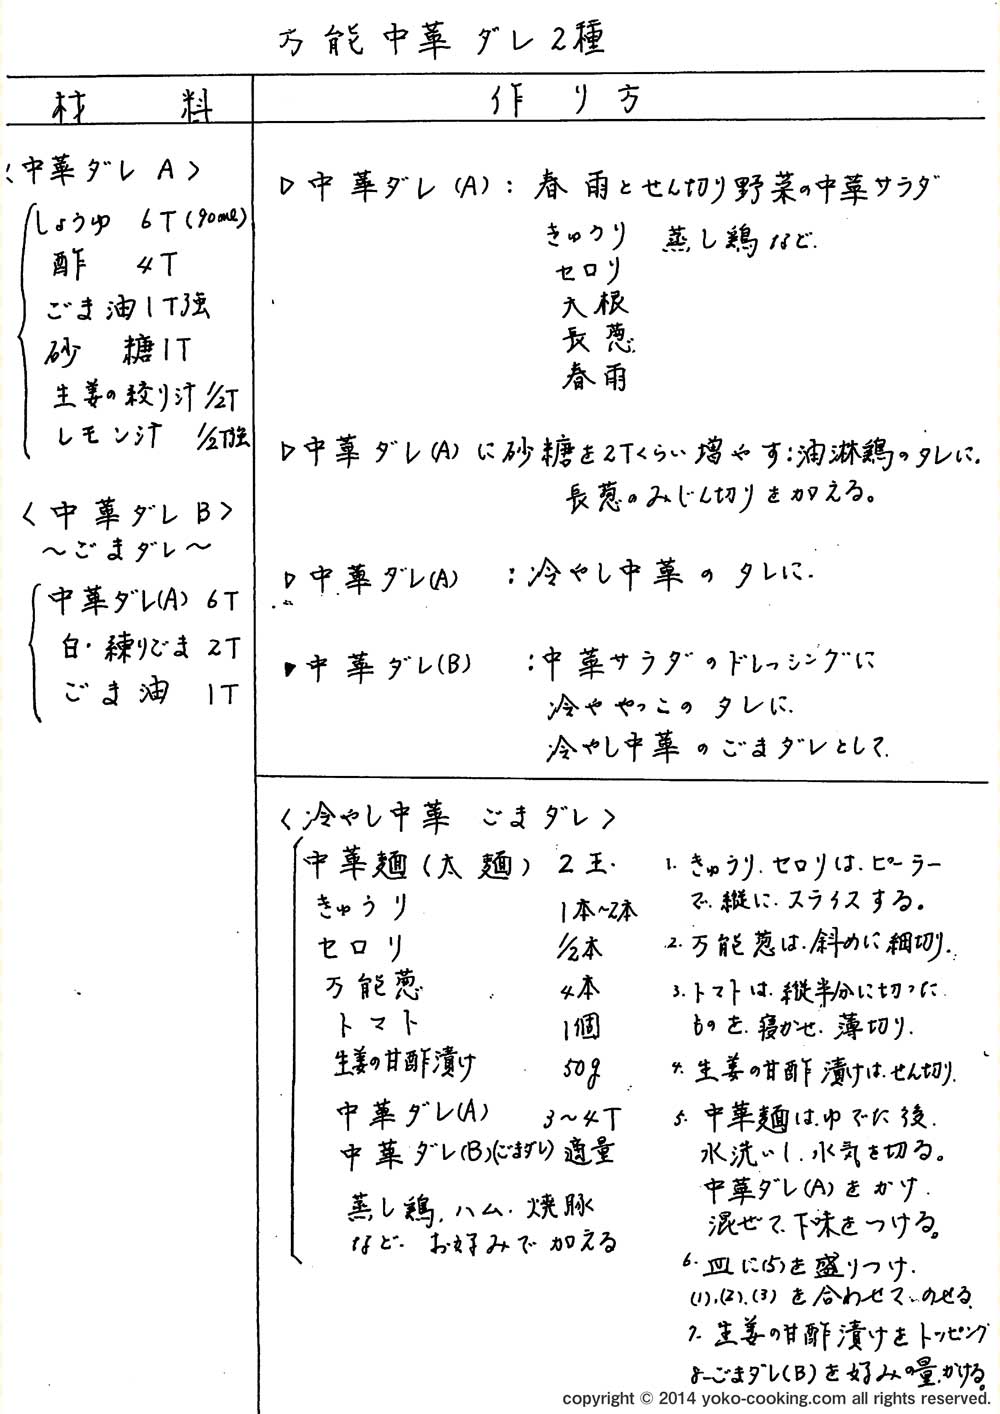 万能中華ダレ2種
材料
作り方
〈中華ダレ A〉
しょうゆ 6T(90ml)
酢 4T
ごま油 1T強
砂糖 1T
生姜の絞り汁 1/2T
レモン汁 1/2T強
〈中華ダレ B〉
〜ごまダレ〜
中華ダレ(A) 6T
白・練りごま 2T
ごま油 1T
▷中華ダレ(A): 春雨とせん切り野菜の中華サラダ
きゅうり 蒸し鶏など.
セロリ
大根
長葱
春雨
▷中華ダレ(A)に砂糖を2Tくらい増やす:油淋鶏のタレに.
長葱のみじん切りを加える。
▷中華ダレ(A) :冷やし中華のタレに.
▶中華ダレ(B) :中華サラダのドレッシングに
冷ややっこのタレに.
冷やし中華のごまダレとして.
〈冷やし中華 ごまダレ〉
中華麺(太麺) 2玉.
きゅうり 1本〜2本
セロリ 1/2本
万能葱 4本
トマト 1個
生姜の甘酢漬け 50g
中華ダレ(A) 3〜4T
中華ダレ(B)(ごまダレ) 適量
蒸し鶏.ハム.焼豚
など. お好みで加える
1. きゅうり.セロリは.ピーラー
で.縦に.スライスする。
2. 万能葱は.斜めに細切り.
3. トマトは.縦半分に切った
ものを.寝かせ.薄切り.
4. 生姜の甘酢漬けは.せん切り.
5. 中華麺は.ゆでた後.
水洗いし.水気を切る。
中華ダレ(A)をかけ.
混ぜて.下味をつける。
6. 皿に(5)を盛りつけ.
(1).(2).(3)を合わせて.のせる.
7. 生姜の甘酢漬けをトッピング
8. ごまダレ(B)を好みの量.かける。
copyright © 2014 yoko-cooking.com all rights reserved.